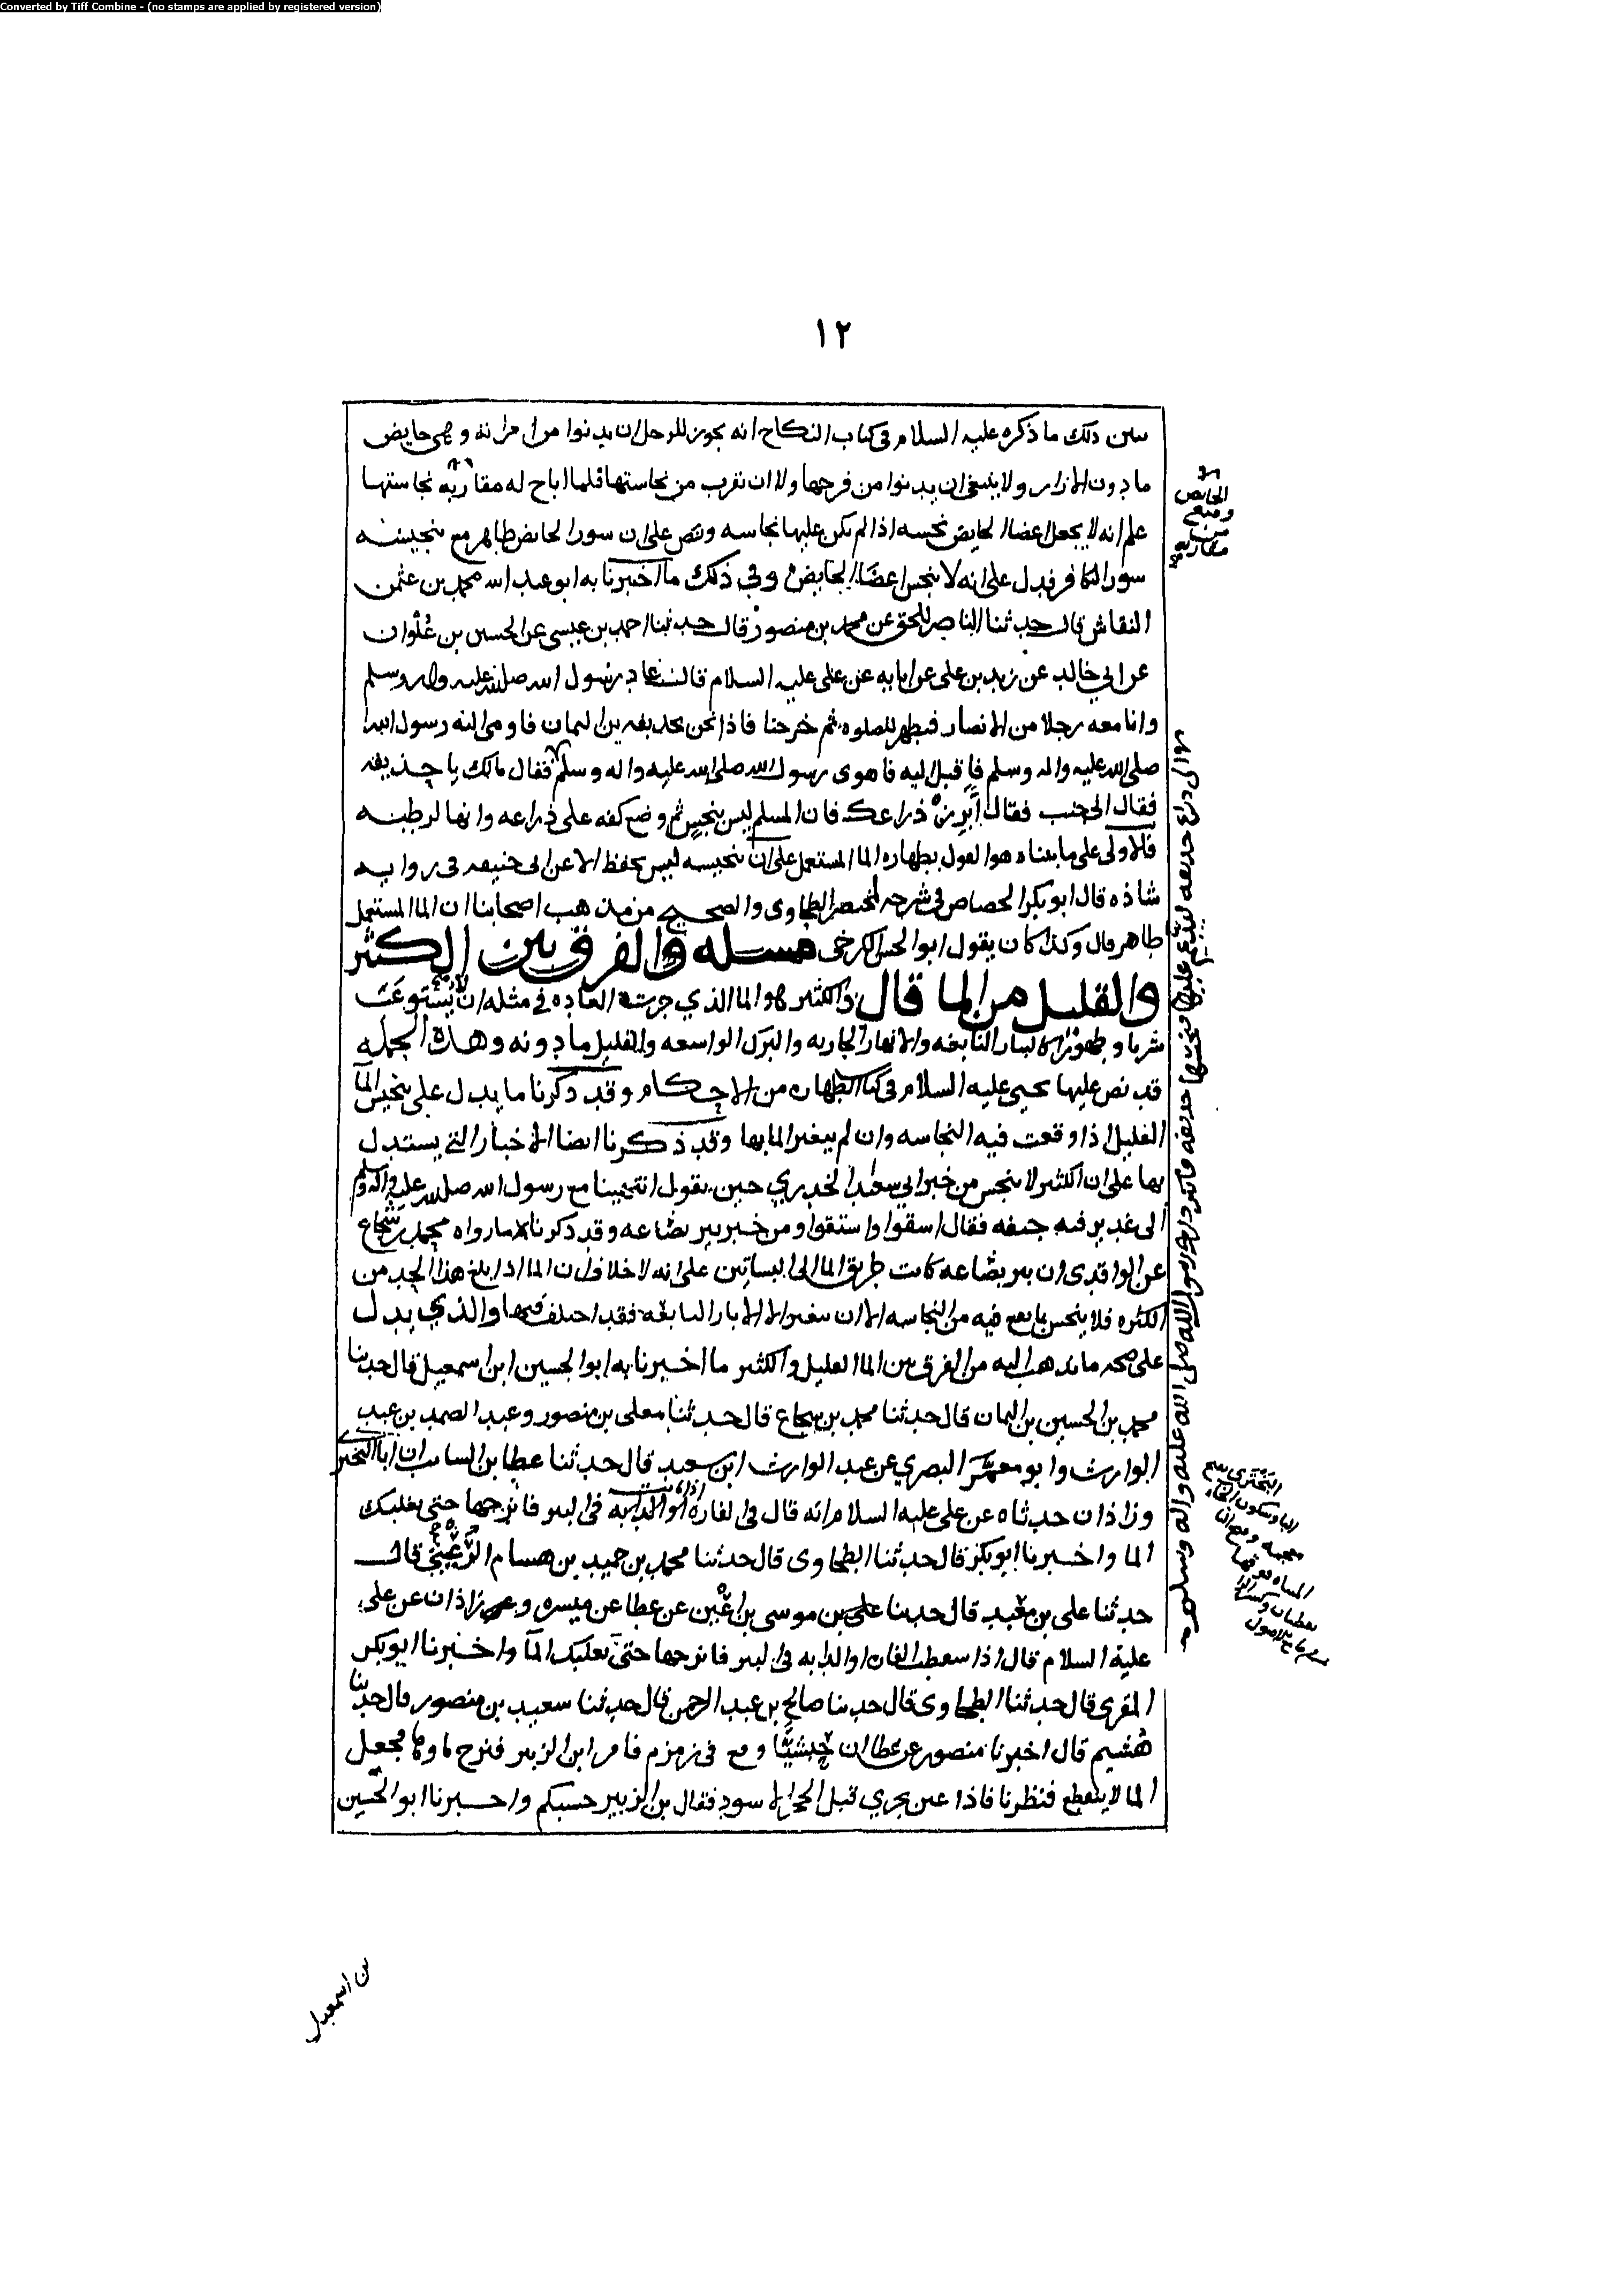 Converted by Tiff Combine - (no stamps are applied by registered version)
١٢
ذلك ما ذكره عليه السلام في كتاب النكاح انه يجوز للرجل ان يدنوا من امراته وهي حايض
ما دون الازار ولا ينبغي ان يدنوا من فرجها ولا ان تقرب من نجاستها فلما اباح له مقاربة نجاستها
علم انه لا يجعل اعضا الحايض نجسه اذا لم يكن عليها نجاسه ونص على ان سور الحايض طاهر مع تنجيسه
سور الكافر فدل على انه لا ينجس اعضا الحايض وفي ذلك ما اخبرنا به ابو عبد الله محمد بن عثمن
النقاش قال حدثنا الناصر للحق عن محمد بن منصور قال حدثنا احمد بن عيسى عن الحسين بن علوان
عن ابي خالد عن زيد بن علي عن ابايه عن علي عليه السلام قال عاد رسول الله صلى الله عليه واله وسلم
وانا معه رجلا من الانصار فتطهر للصلوه ثم خرجنا فاذا نحن بحذيفه بن اليمان فاومى اليه رسول الله
صلى الله عليه واله وسلم فاقبل اليه فاهوى رسول الله صلى الله عليه واله وسلم فقال مالك يا حذيفه
فقال اني جنب فقال ابرز ذراعك فان المسلم ليس بنجس ثم وضع كفه على ذراعه وانها لرطبه
فالاولى على ما بيناه هو القول بطهاره الما المستعمل على ان تنجيسه ليس يحفظ الا عن ابي حنيفه في روايه
شاذه قال ابو بكر الجصاص في شرحه لمختصر الطحاوي والصحيح من مذهب اصحابنا ان الما المستعمل
طاهر قال وكذا كان يقول ابو الحسن الكرخي مسله والفرق بين الكثير
والقليل من الما قال والكثير هو الما الذي جرت العاده في مثله ان لا يستوعب
شربا وطهورا كالبيار النابعه والانهار الجاريه والبرك الواسعه والقليل ما دونه وهذه الجمله
قد نص عليها يحيى عليه السلام في كتاب الطهاره من الاحكام وقد ذكرنا ما يدل على تنجيس الما
القليل اذا وقعت فيه النجاسه وان لم يتغير الما بها وقد ذكرنا ايضا الاخبار التي يستدل
بها على ان الكثير لا ينجس من خبر ابي سعيد الخدري حين يقول انتهينا مع رسول الله صلى الله عليه واله وسلم
الى غدير فيه جيفه فقال اسقوا واستقوا ومن خبر بير بضاعه وقد ذكرنا ما رواه محمد بن شجاع
عن الواقدي ان بير بضاعه كانت طريق الما الى البساتين على انه لا خلاف ان الما اذا بلغ هذا الحد من
الكثره فلا ينجس بما يقع فيه من النجاسه الا ان يتغير الا الابار النابعه فقد اختلف فيها والذي يدل
على صحه ما نذهب اليه من الفرق بين الما القليل والكثير ما اخبرنا به ابو الحسين ابن اسمعيل قال حدثنا
محمد بن الحسين بن اليمان قال حدثنا محمد بن شجاع قال حدثنا معلى بن منصور وعبد الصمد بن عبد
الوارث وابو معمر البصري عن عبد الوارث ابن سعيد قال حدثنا عطا بن السايب ان ابا البختري
وزاذان حدثاه عن علي عليه السلام انه قال في الفاره او الدابه اذا ماتت في البير فانزحها حتى يغلبك
الما واخبرنا ابو بكر قال حدثنا الطحاوي قال حدثنا محمد بن حميد بن هشام الرعيني قال
حدثنا علي بن معبد قال حدثنا علي بن موسى بن اعين عن عطا عن ميسره وعن زاذان عن علي
عليه السلام قال اذا سقطت الفار او الدابه في البير فانزحها حتى يغلبك الما واخبرنا ابو بكر
المقري قال حدثنا الطحاوي قال حدثنا صالح بن عبد الرحمن قال حدثنا سعيد بن منصور قال حدثنا
هشيم قال اخبرنا منصور عن عطا ان حبشيا وقع في زمزم فامر ابن الزبير فنزح ماوها فجعل
الما لا ينقطع فنظرنا فاذا عين تجري قبل الحجر الاسود فقال بن الزبير حسبكم واخبرنا ابو الحسين
الحايض
ومنعه
من
مقاربه
الى ذراع حذيفه ليدعم عليها فنحاها حذيفه فانكر ذلك رسول الله صلى الله عليه واله وسلم
البختري
البا وسكون الخا
معجمه
بن اسمعيل